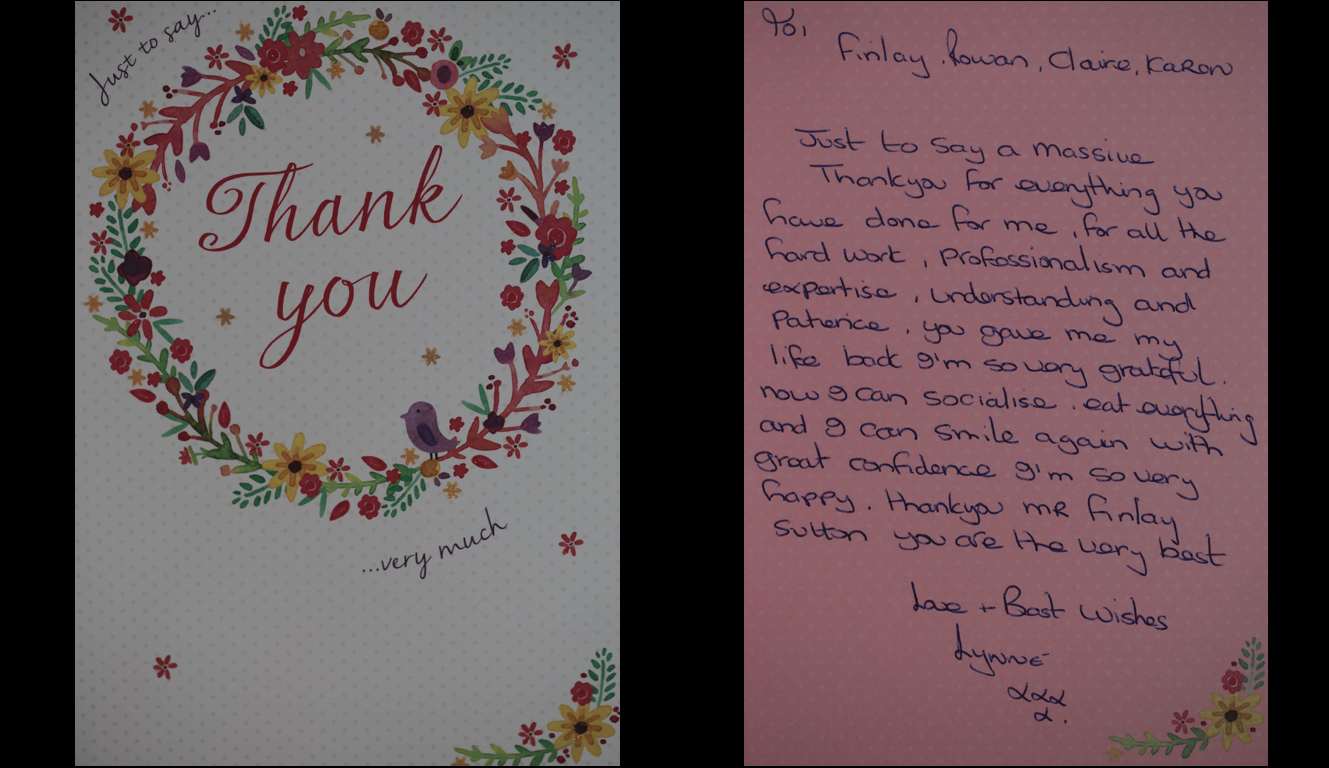 Just to say...
Thank
you
...very much
To,
Finlay, Rowan, Claire, Karen
Just to say a massive
Thankyou for everything you
have done for me, for all the
hard work, professionalism and
expertise, understanding and
patience, you gave me my
life back I'm so very grateful.
now I can socialise, eat everything
and I can smile again with
great confidence I'm so very
happy. thankyou MR Finlay
Sutton you are the very best
Love + Best Wishes
Lynne
xxx
x.